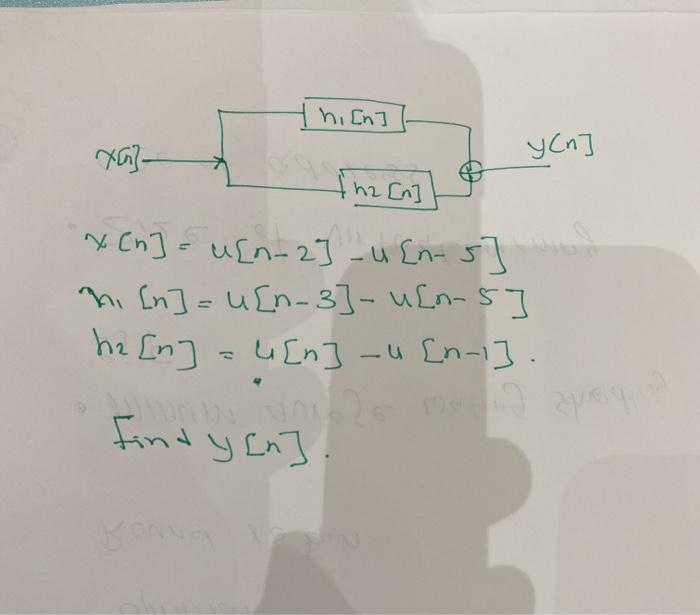 h1[n]
x[n]
y[n]
h2[n]
x[n] = u[n-2] - u[n-5]
h1[n] = u[n-3] - u[n-5]
h2[n] = u[n] - u[n-1].
Find y[n].